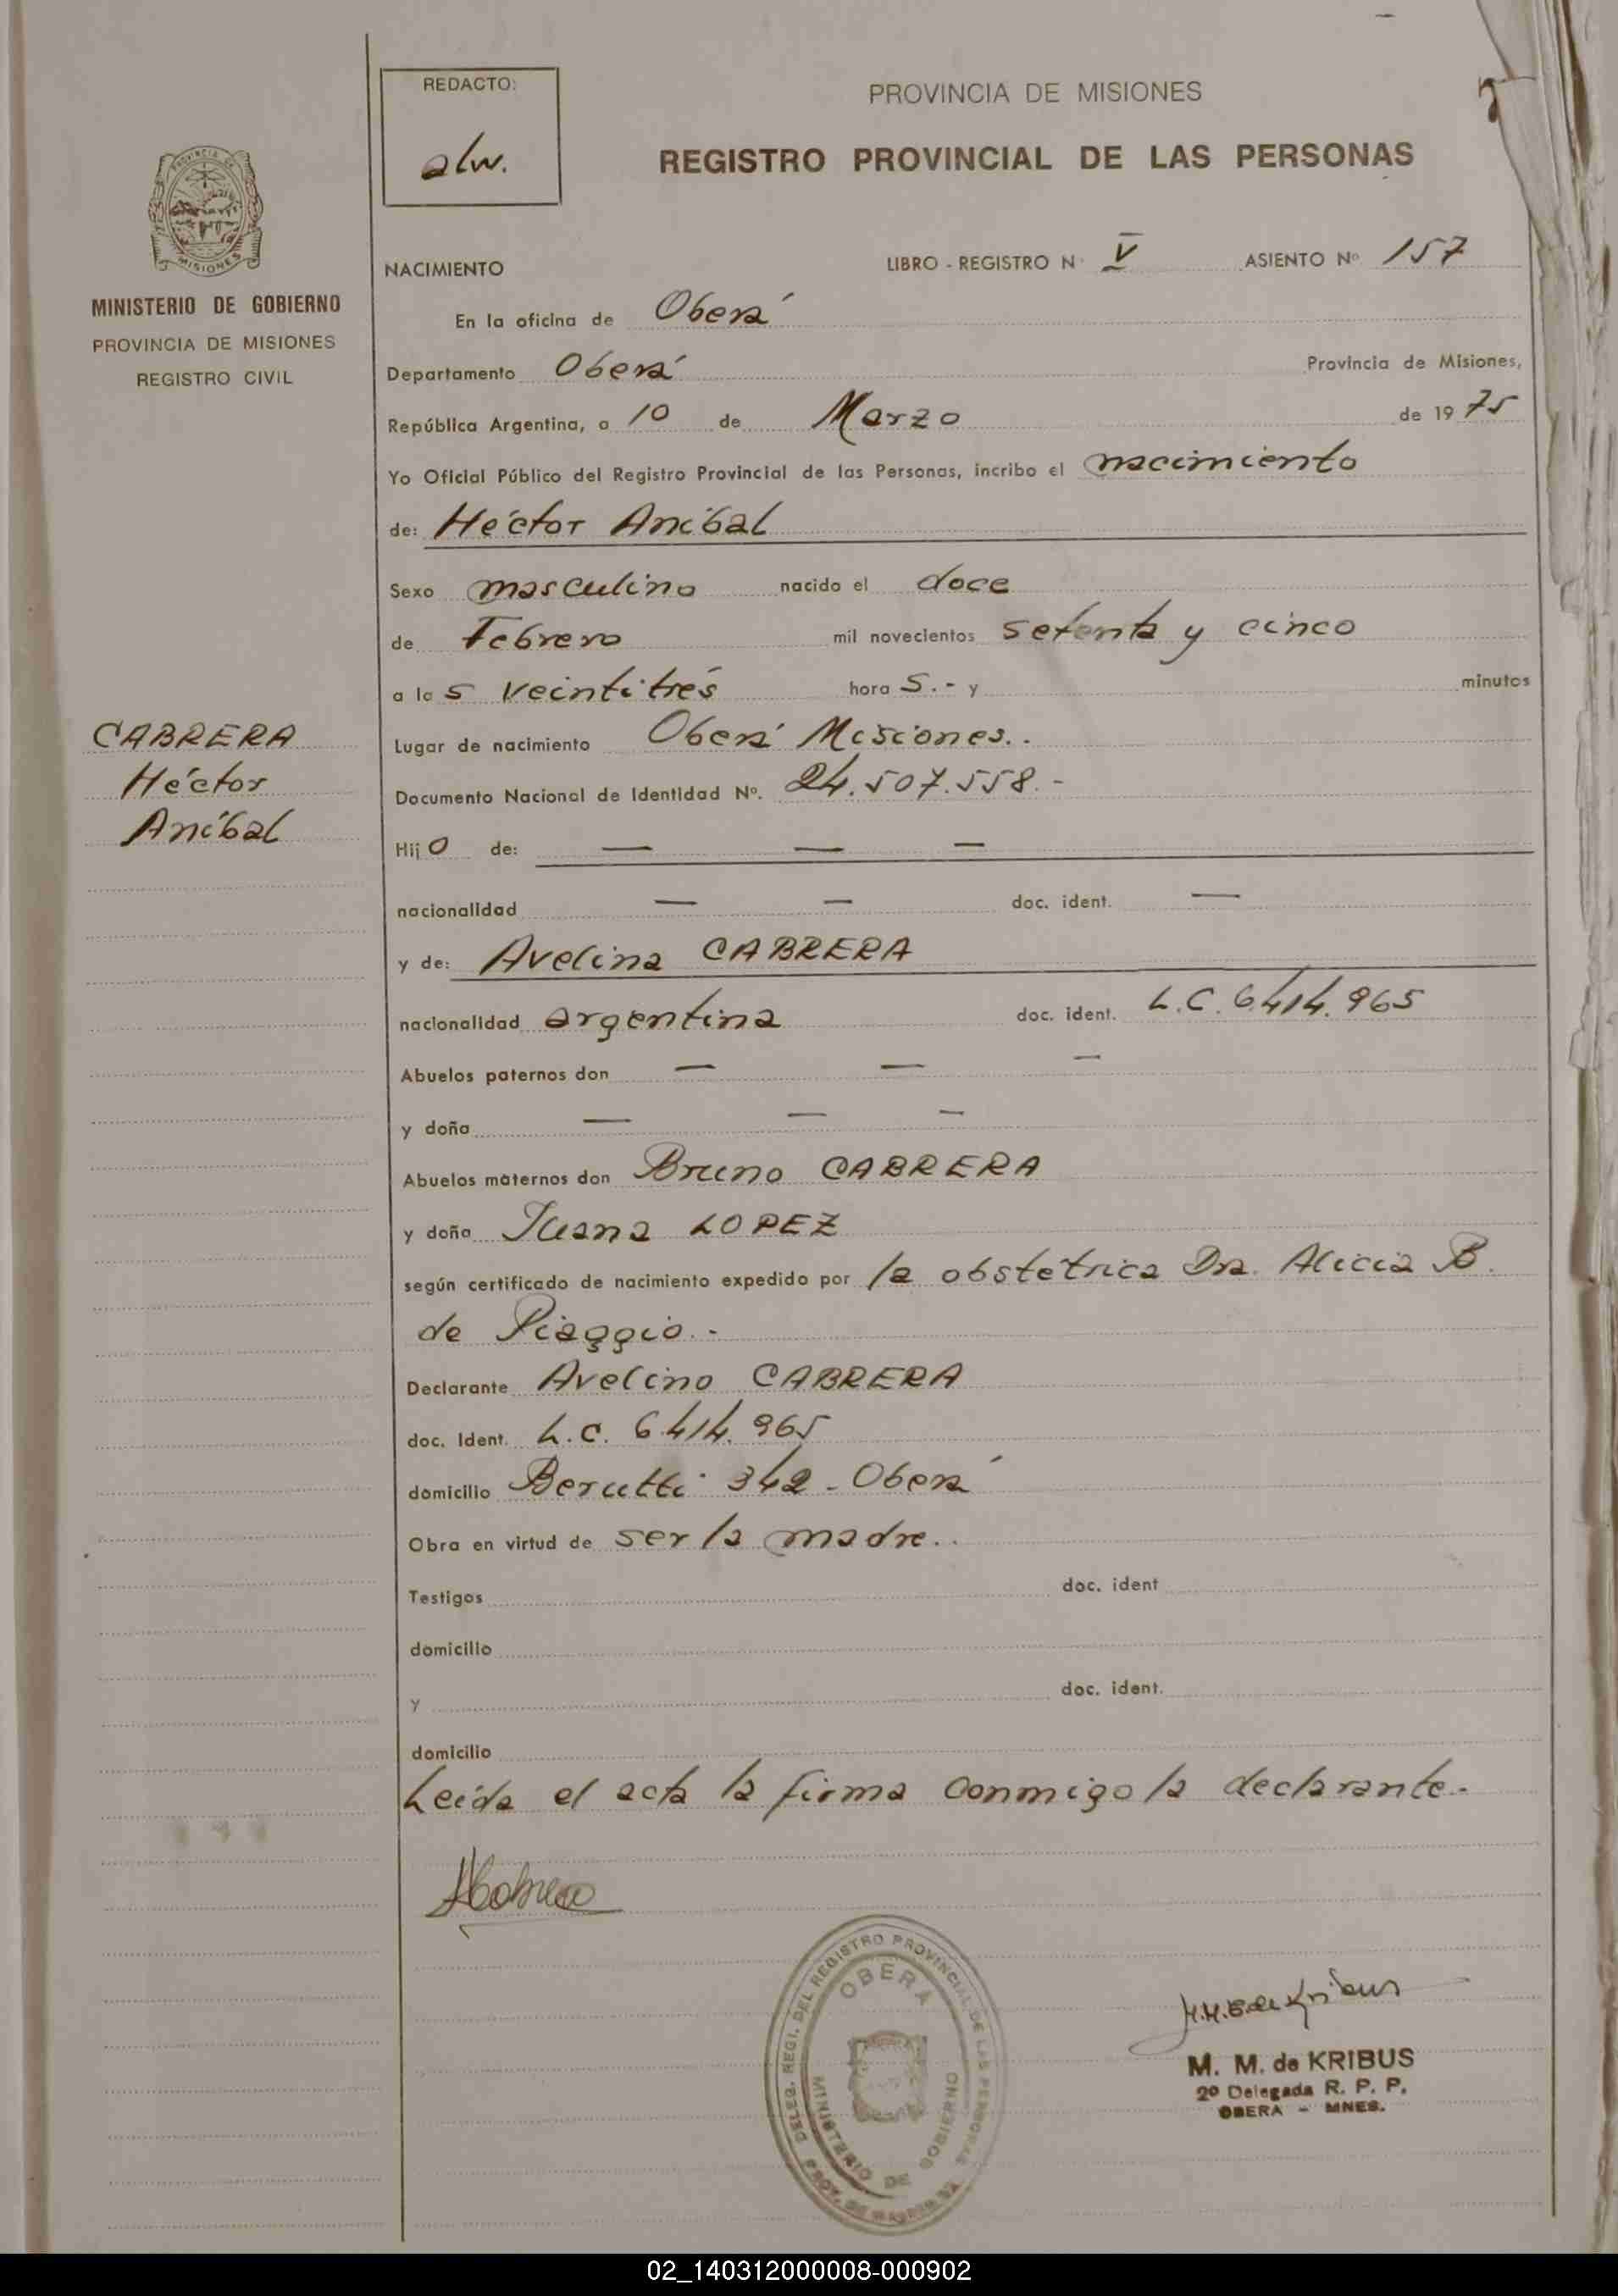 REDACTO:
alw.
PROVINCIA DE MISIONES
REGISTRO PROVINCIAL DE LAS PERSONAS
MISIONES
MINISTERIO DE GOBIERNO
PROVINCIA DE MISIONES
REGISTRO CIVIL
NACIMIENTO LIBRO - REGISTRO N° V ASIENTO Nº 157
En la oficina de Oberá
Departamento Oberá Provincia de Misiones,
República Argentina, a 10 de Marzo de 1975
Yo Oficial Público del Registro Provincial de las Personas, incribo el nacimiento
de: Héctor Aníbal
Sexo masculino nacido el doce
de Febrero mil novecientos setenta y cinco
a las veintitrés horas.- y minutos
CABRERA
Héctor
Aníbal
Lugar de nacimiento Oberá Misiones..
Documento Nacional de Identidad Nº. 24.507.558.-
Hijo de: — — —
nacionalidad — — doc. ident. —
y de: Avelina CABRERA
nacionalidad argentina doc. ident. L.C. 6.414.965
Abuelos paternos don — — —
y doña — — —
Abuelos maternos don Bruno CABRERA
y doña Juana LOPEZ
según certificado de nacimiento expedido por la obstétrica Dra. Alicia B.
de Piaggio.-
Declarante Avelino CABRERA
doc. Ident. L.C. 6.414.965
domicilio Berutti 342 - Oberá
Obra en virtud de ser la madre..
Testigos doc. ident
domicilio
y doc. ident.
domicilio
Leída el acta la firma conmigo la declarante.-
ACabrera
DELEG. REGI. DEL REGISTRO PROVINCIAL DE LAS PERSONAS
OBERA
MINISTERIO DE GOBIERNO
PROV. DE MISIONES
M. M. de KRIBUS
2º Delegada R. P. P.
OBERA - MNES.
02_140312000008-000902